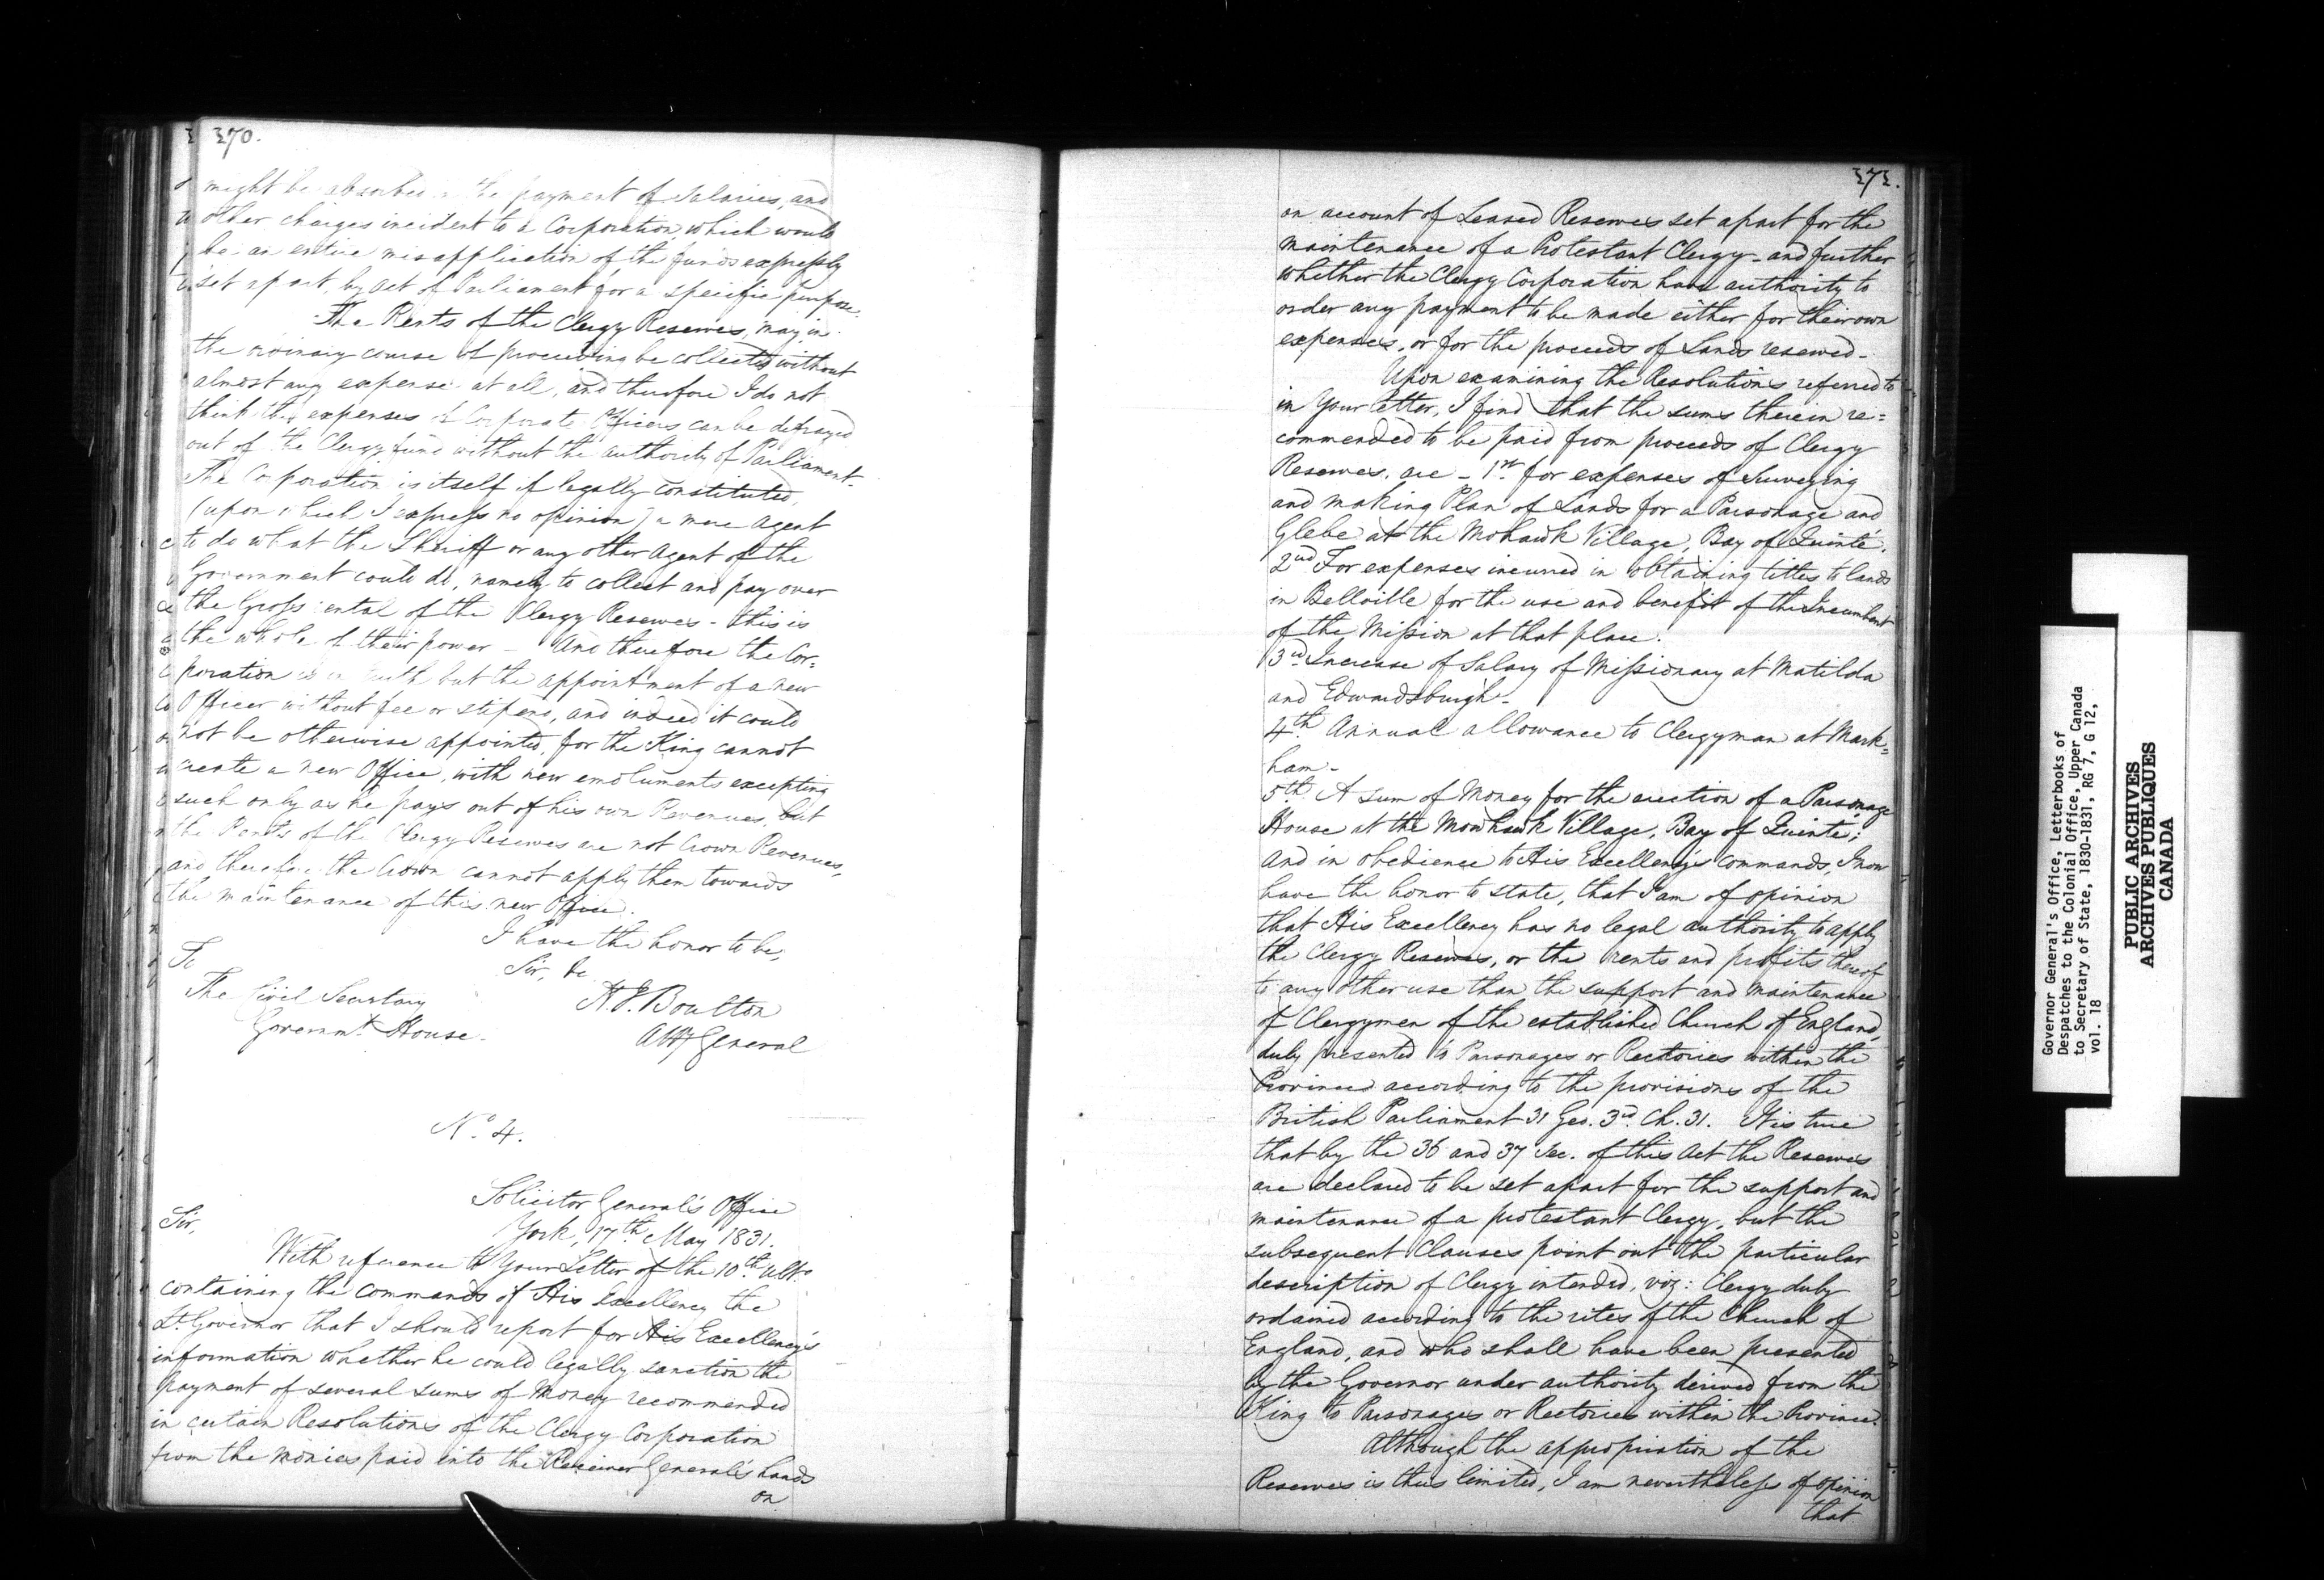 270.
might be absorbed in the payment of Salaries, and
other charges incident to a Corporation, which would
be an entire misapplication of the funds expressly
set apart by act of Parliament for a specific purpose.
The Rents of the Clergy Reserves may in
the ordinary course of proceeding be collected without
almost any expense at all, and therefore I do not
think the expenses of Corporate Officers can be defrayed
out of the Clergy fund without the authority of Parliament.
The Corporation is itself if legally constituted,
(upon which I express no opinion) a mere agent
to do what the Sheriff or any other Agent of the
Government could do, namely to collect and pay over
the Gross rental of the Clergy Reserves - this is
the whole of their power - And therefore the Cor=
poration is in truth but the appointment of a new
Officer without fee or stipend, and indeed it could
not be otherwise appointed, for the King cannot
create a new Office, with new emoluments excepting
such only as he pays out of his own Revenues, but
the Rents of the Clergy Reserves are not Crown Revenues,
and therefore the Crown cannot apply them towards
the maintenance of this new Office.
I have the honor to be,
Sir, &c
To
The Civil Secretary
H. J. Boulton
Governmt House.
Atty General
No 4.
Solicitor General's Office
York, 17th May 1831.
Sir,
With reference to Your Letter of the 10th ulto
containing the commands of His Excellency the
Lt. Governor that I should report for His Excellency's
information whether he could legally sanction the
payment of several sums of Money recommended
in certain Resolutions of the Clergy Corporation
from the monies paid into the Receiver General's hands
on
271.
on account of Leased Reserves set apart for the
maintenance of a Protestant Clergy - and further
whether the Clergy Corporation have authority to
order any payment to be made either for their own
expenses, or for the proceeds of Lands reserved -
Upon examining the Resolutions referred to
in Your letter, I find that the sums therein re=
commended to be paid from proceeds of Clergy
Reserves, are - 1st for expenses of Surveying
and making Plan of Lands for a Parsonage and
Glebe at the Mohawk Village, Bay of Quinté.
2nd For expenses incurred in obtaining titles to lands
in Belleville for the use and benefit of the Incumbent
of the Mission at that place.
3rd Increase of Salary of Missionary at Matilda
and Edwardsburgh -
4th Annual allowance to Clergyman at Mark=
ham -
5th A sum of Money for the erection of a Parsonage
House at the Mowhawk Village, Bay of Quinté;
And in obedience to His Excellency's Commands, I now
have the honor to state, that I am of opinion
that His Excellency has no legal authority to apply
the Clergy Reserves, or the rents and profits thereof
to any other use than the support and maintenance
of Clergymen of the established Church of England,
duly presented to Parsonages or Rectories within the
Province according to the provisions of the
British Parliament 31 Geo. 3rd Ch. 31. It is true
that by the 36 and 37 Sec. of this Act the Reserves
are declared to be set apart for the support and
maintenance of a protestant Clergy, but the
subsequent Clauses point out the particular
description of Clergy intended, viz: Clergy duly
ordained according to the rites of the Church of
England, and who shall have been presented
by the Governor under authority derived from the
King to Parsonages or Rectories within the Province.
Although the appropriation of the
Reserves is thus limited, I am nevertheless of opinion
that
Governor General's Office, Letterbooks of
Despatches to the Colonial Office, Upper Canada
to Secretary of State, 1830-1831, RG 7, G 12,
vol. 18
PUBLIC ARCHIVES
ARCHIVES PUBLIQUES
CANADA